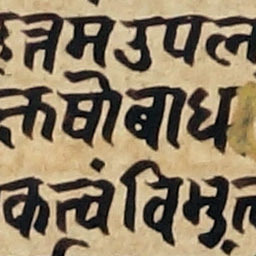 त्तम उपल
क्तषोबाध
कत्वंविमु